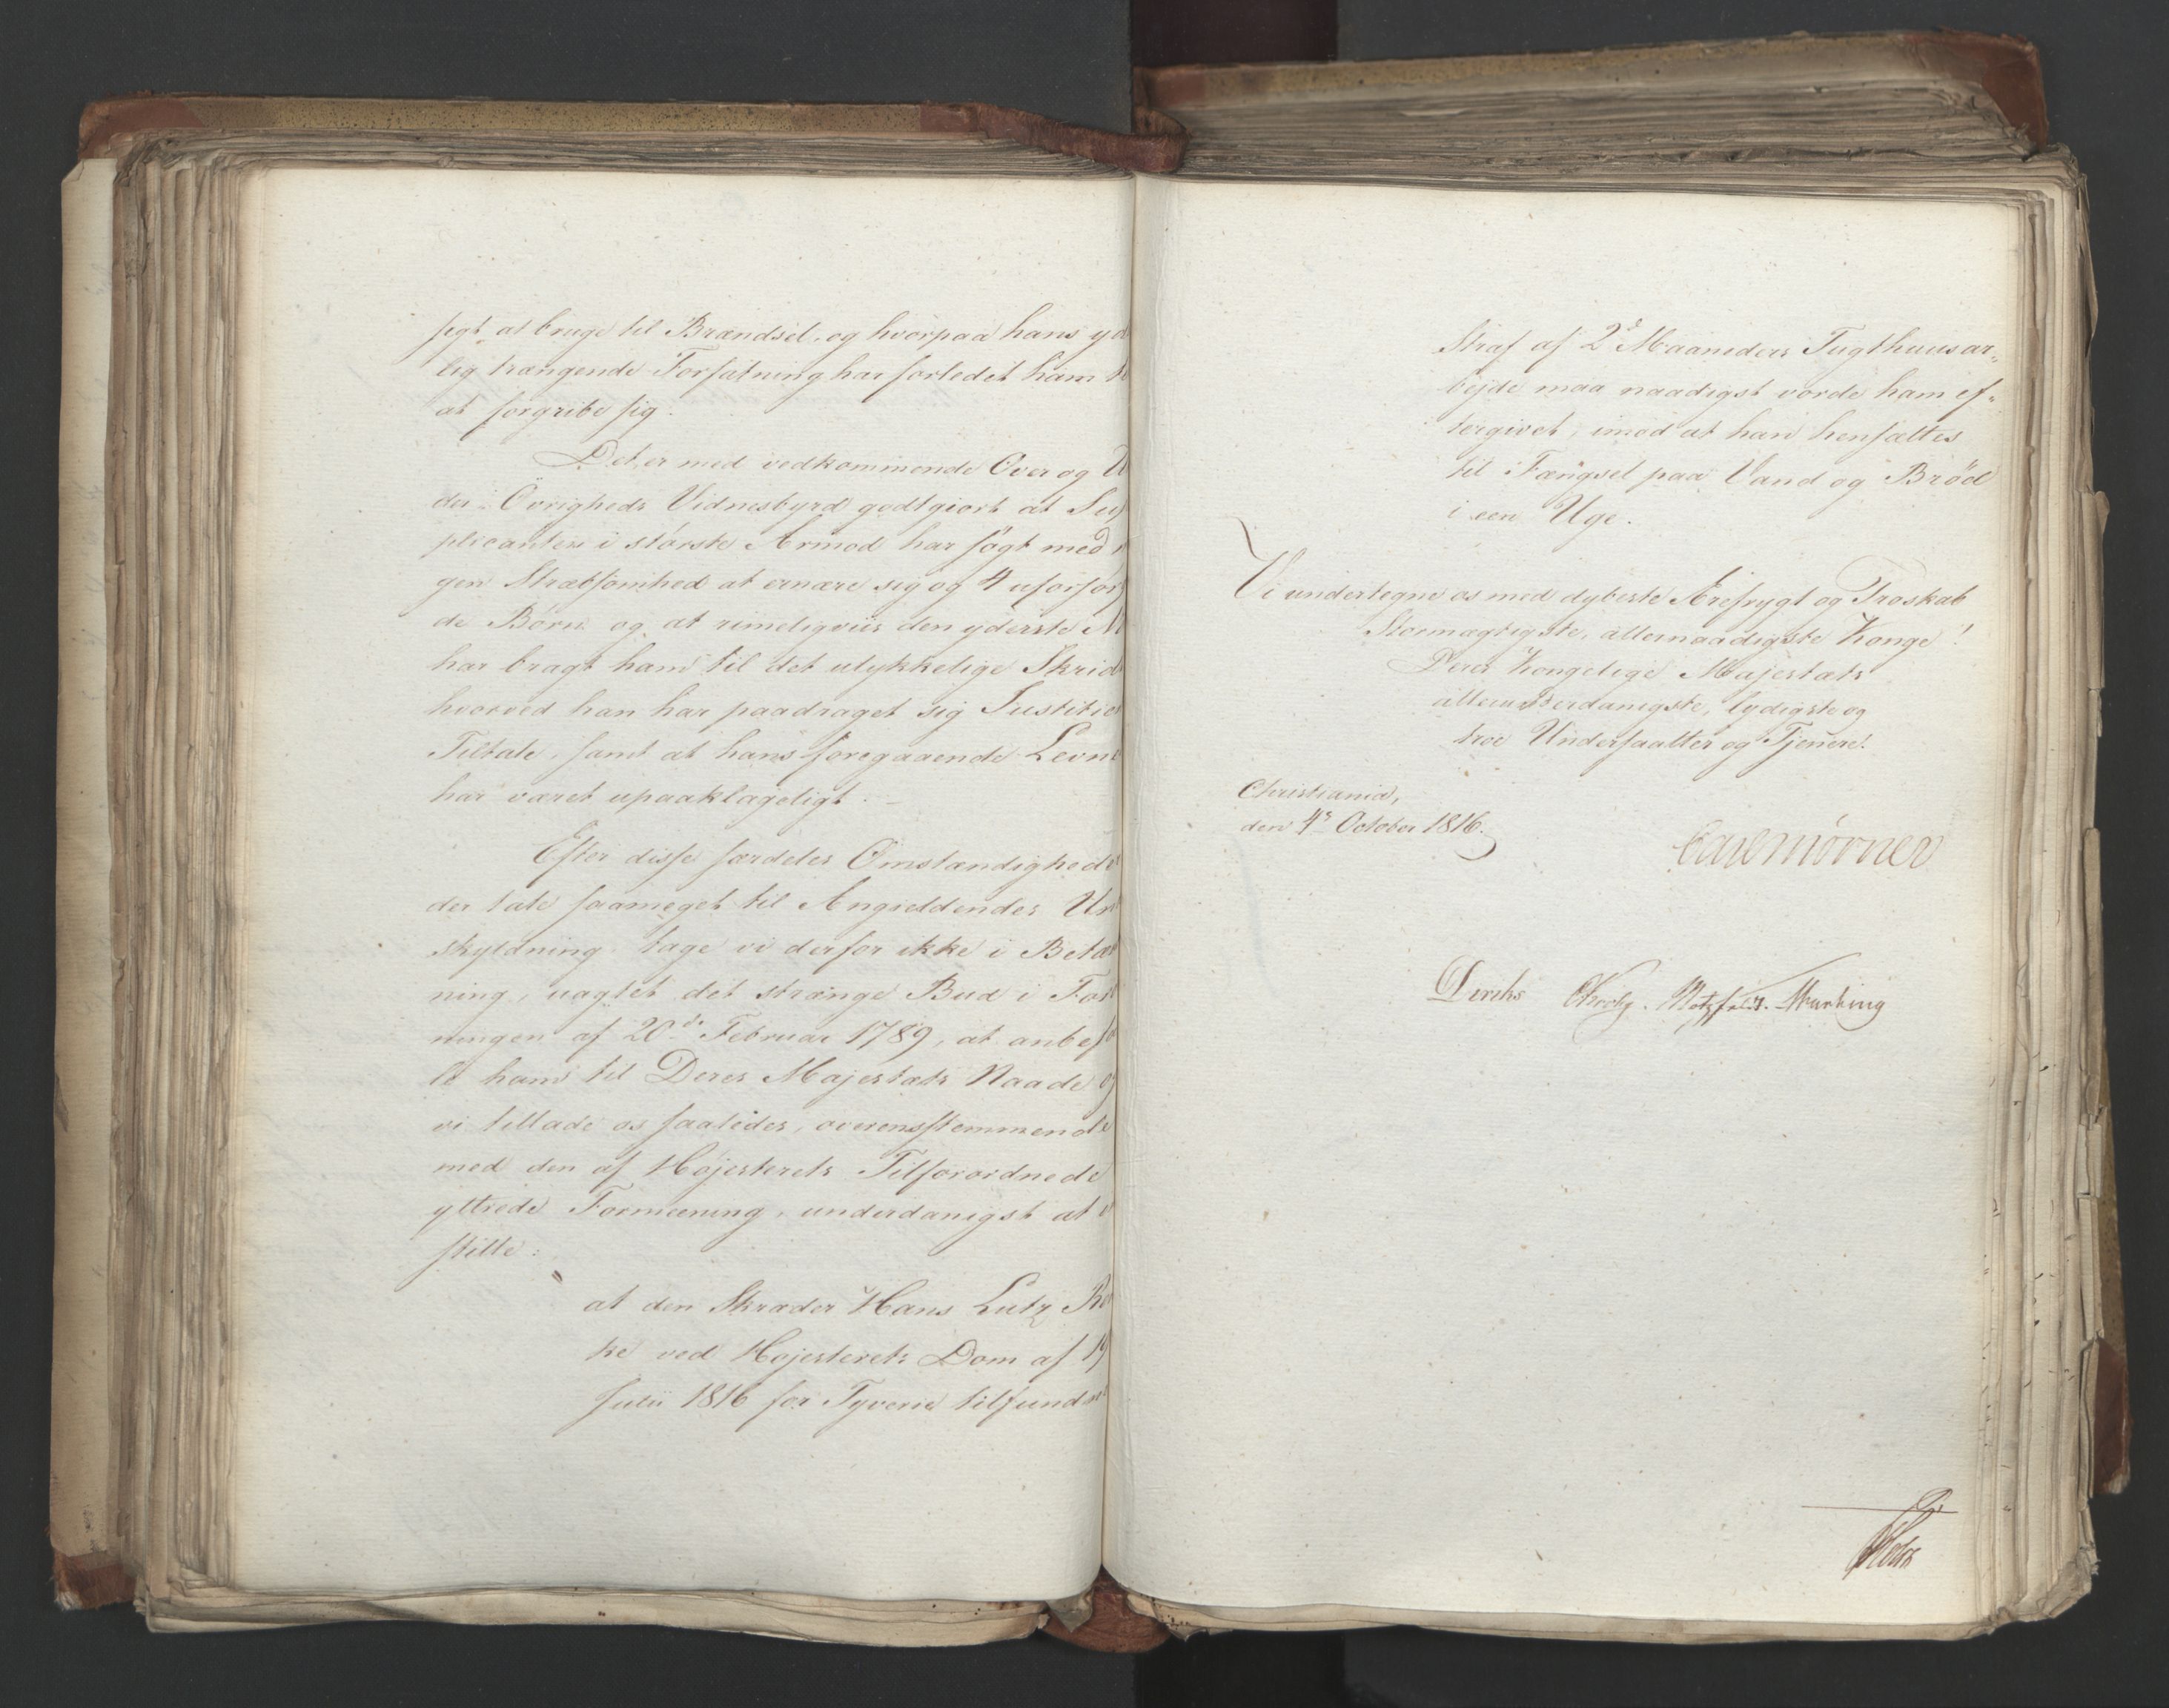 sigt, at bruge til Brændsel, og hvorpaa hans yd
lig trængende Forfatning har forledet ham
at forgribe sig.
Det er med vedkommende Over og U
der-Övrigheds Vidnesbyrd godtgiort at Sup
plicanten i störste Armod har sögt med
gen Stræbsomhed at ernære sig og 4 uforsörg
de Børn og at rimeligviis den yderste
har bragt ham til det ulykkelige Skridt
hvorved han har paadraget sig Justitiens
Tiltale, samt at hans foregaaende Levnet
har været upaaklageligt.
Efter disse særdeles Omstændigheder
der tale saameget til Angieldendes Und
skyldning tage vi derfor ikke i Betænk
ning, uagtet det strænge Bud i Forord
ningen af 20de Februar 1789, at anbefa
le ham til Deres Majestæts Naade og
vi tillade os saaledes, overensstemmende
med den af Højesterets Tilforordnede
yttrede Formeening, underdanigst at
stille:
at den Skræder Hans Lutz
ke ved Højesterets Dom af 19
Julii 1816 for Tyverie tilfundne
Straf af 2de Maaneders Tugthuusar-
bejde maa naadigst vorde ham ef-
tergivet, imod at han hensættes
til Fængsel paa Vand og Brød
i een Uge.
Vi undertegne os med dybeste Ærefrygt og Troskab
Stormægtigste, allernaadigste Konge!
Deres Kongelige Majestæts
allerunderdanigste, lydigste og
troe Undersaatter og Tjenere.
Christiania,
den 4de October 1816.
Carl Mörner
Diriks Motzfeldt.